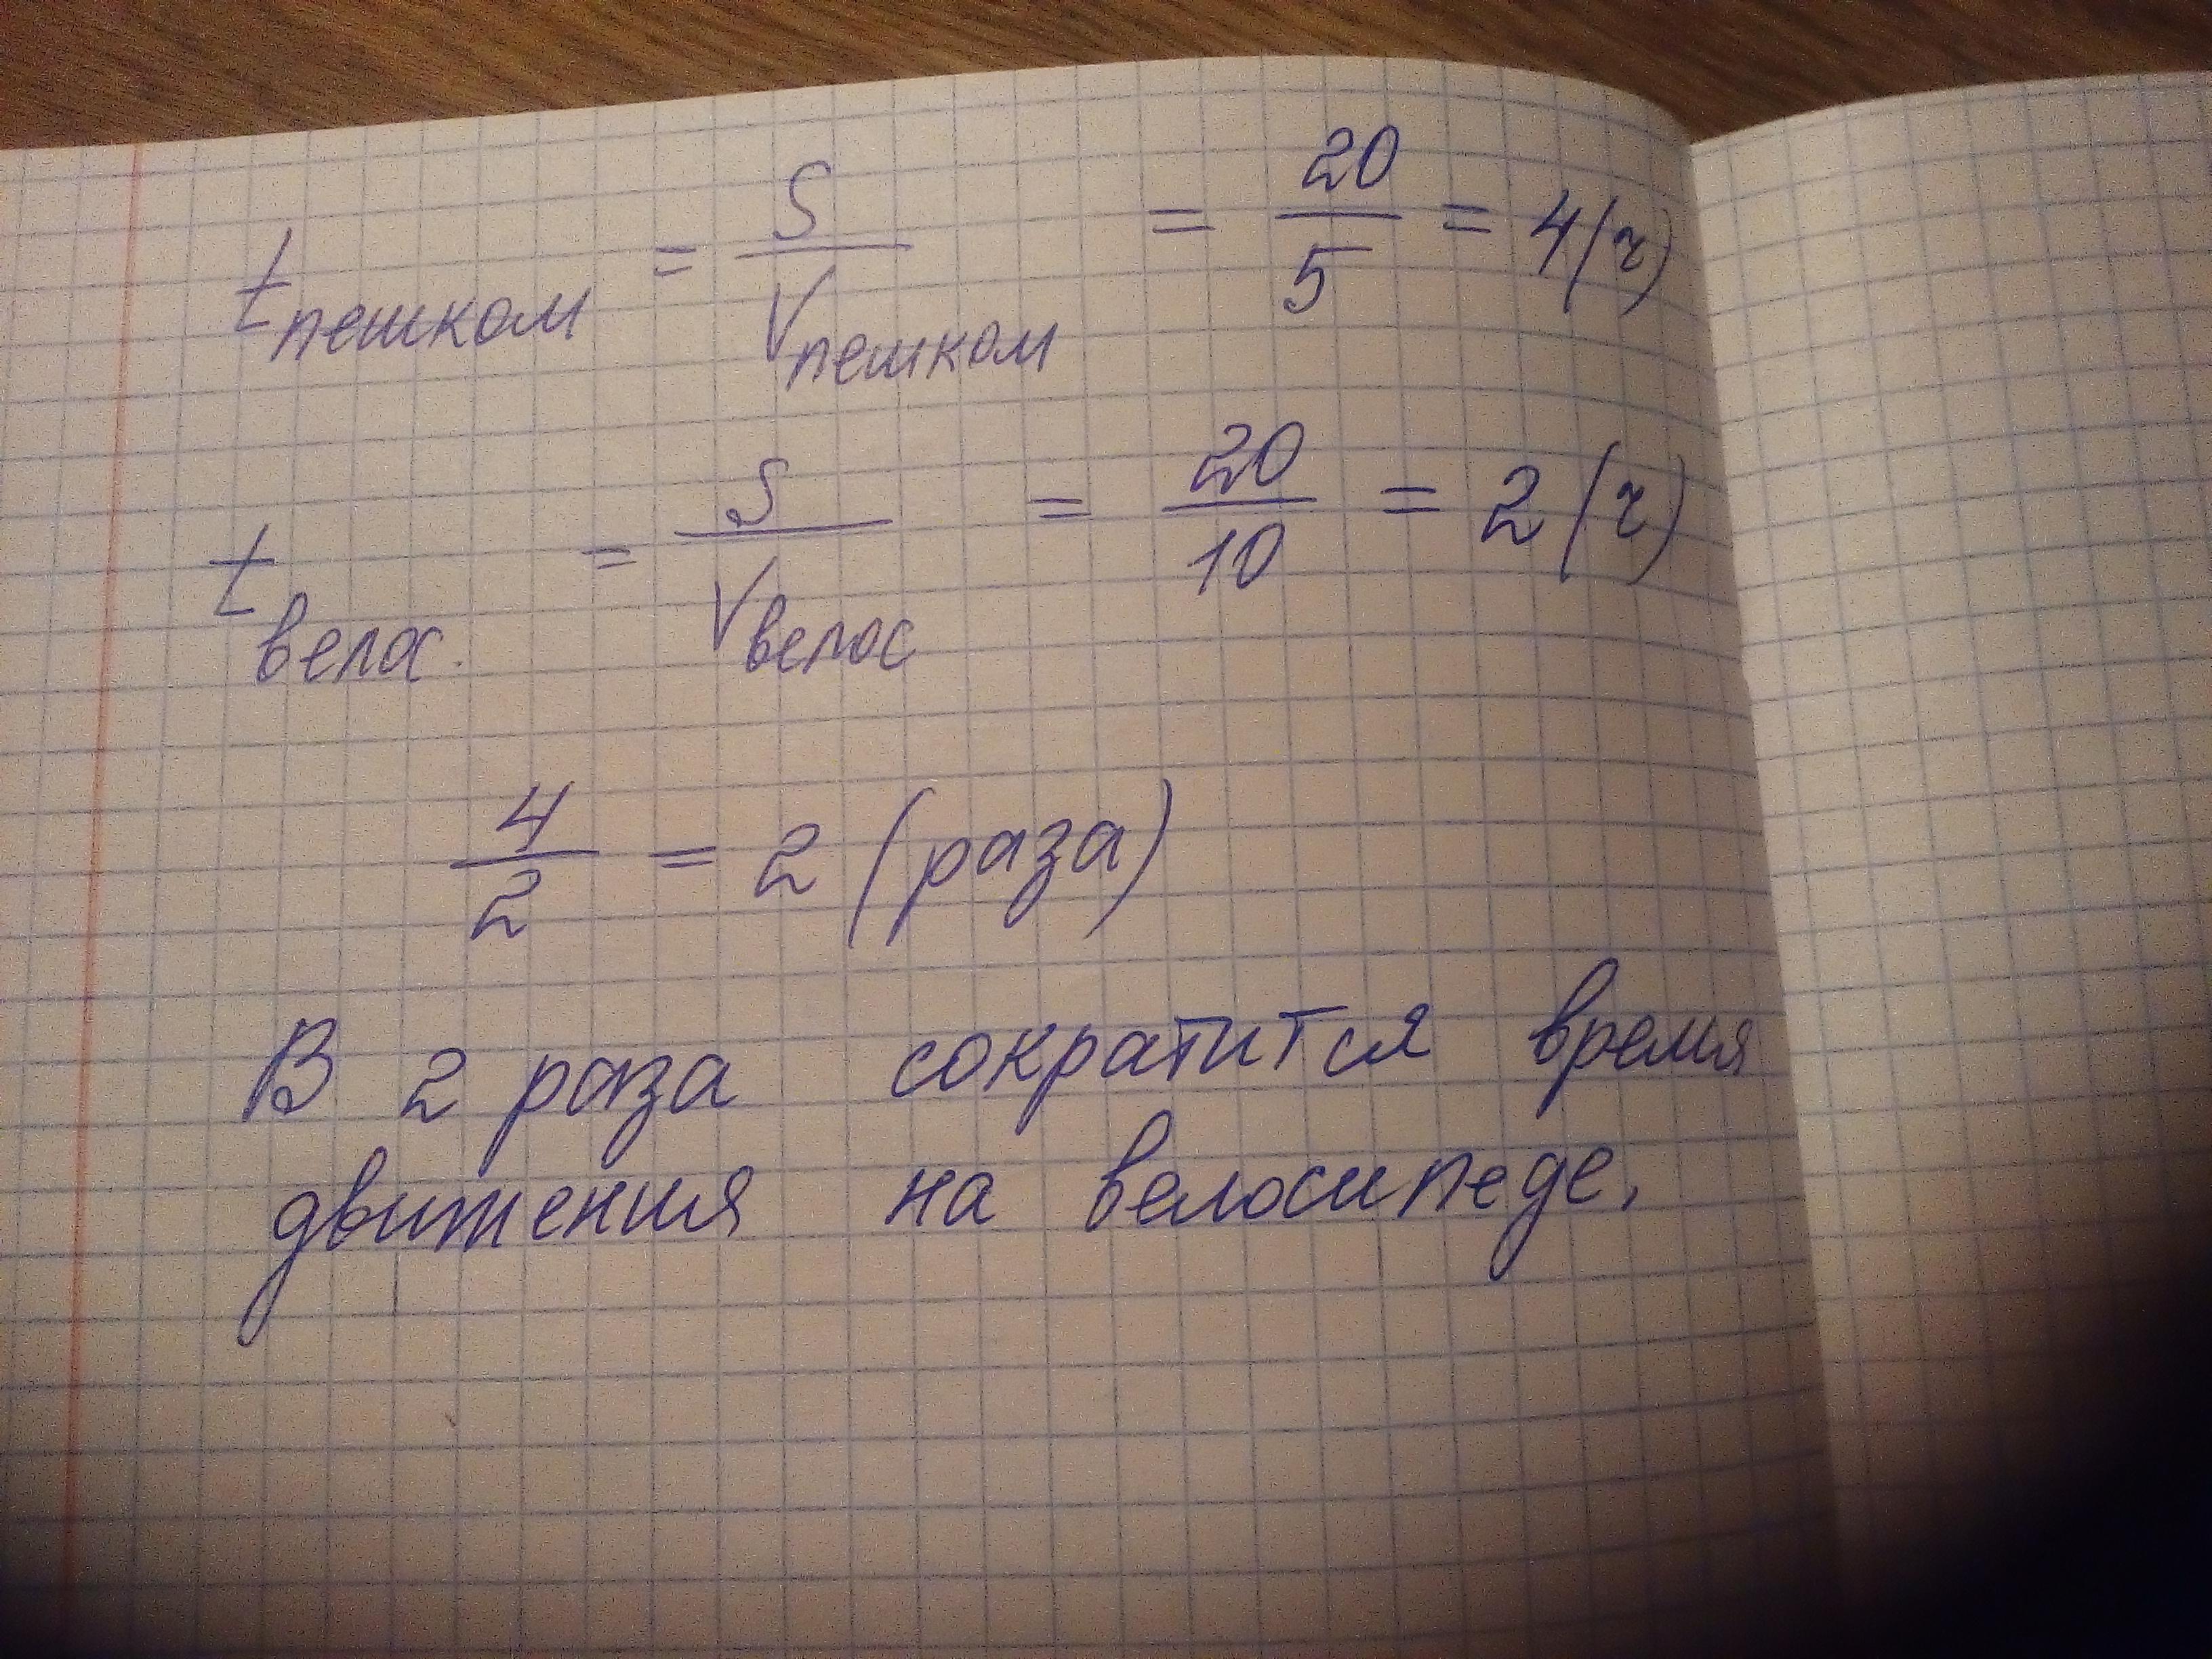 t пешком = S / V пешком = 20 / 5 = 4 (ч)
t велос. = S / V велос = 20 / 10 = 2 (ч)
4 / 2 = 2 (раза)
В 2 раза сократится время
движения на велосипеде.